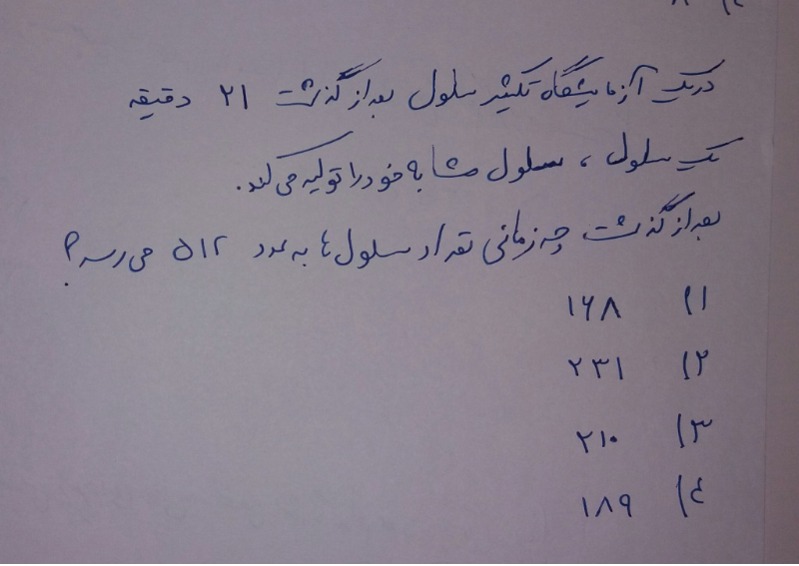 در یک آزمایشگاه تکثیر سلول بعد از گذشت ۲۱ دقیقه
یک سلول ، سلول مشابه خود را تولید می کند.
بعد از گذشت چه زمانی تعداد سلول ها به عدد ۵۱۲ می رسد؟
۱) ۱۶۸
۲) ۲۳۱
۳) ۲۱۰
۴) ۱۸۹